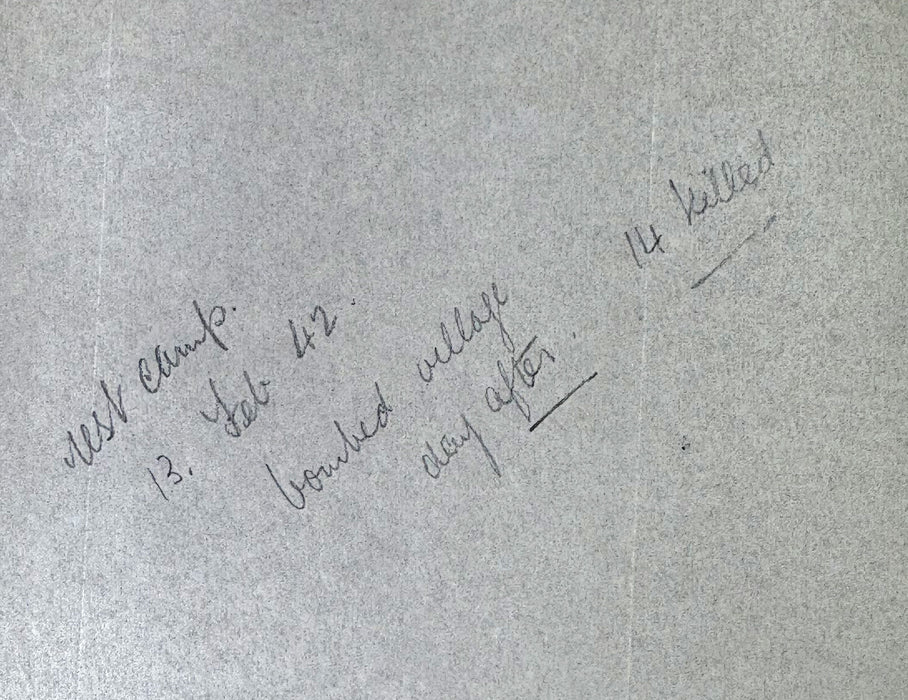 rest camp.
13. Feb 42.
bombed village
day after.
14 killed